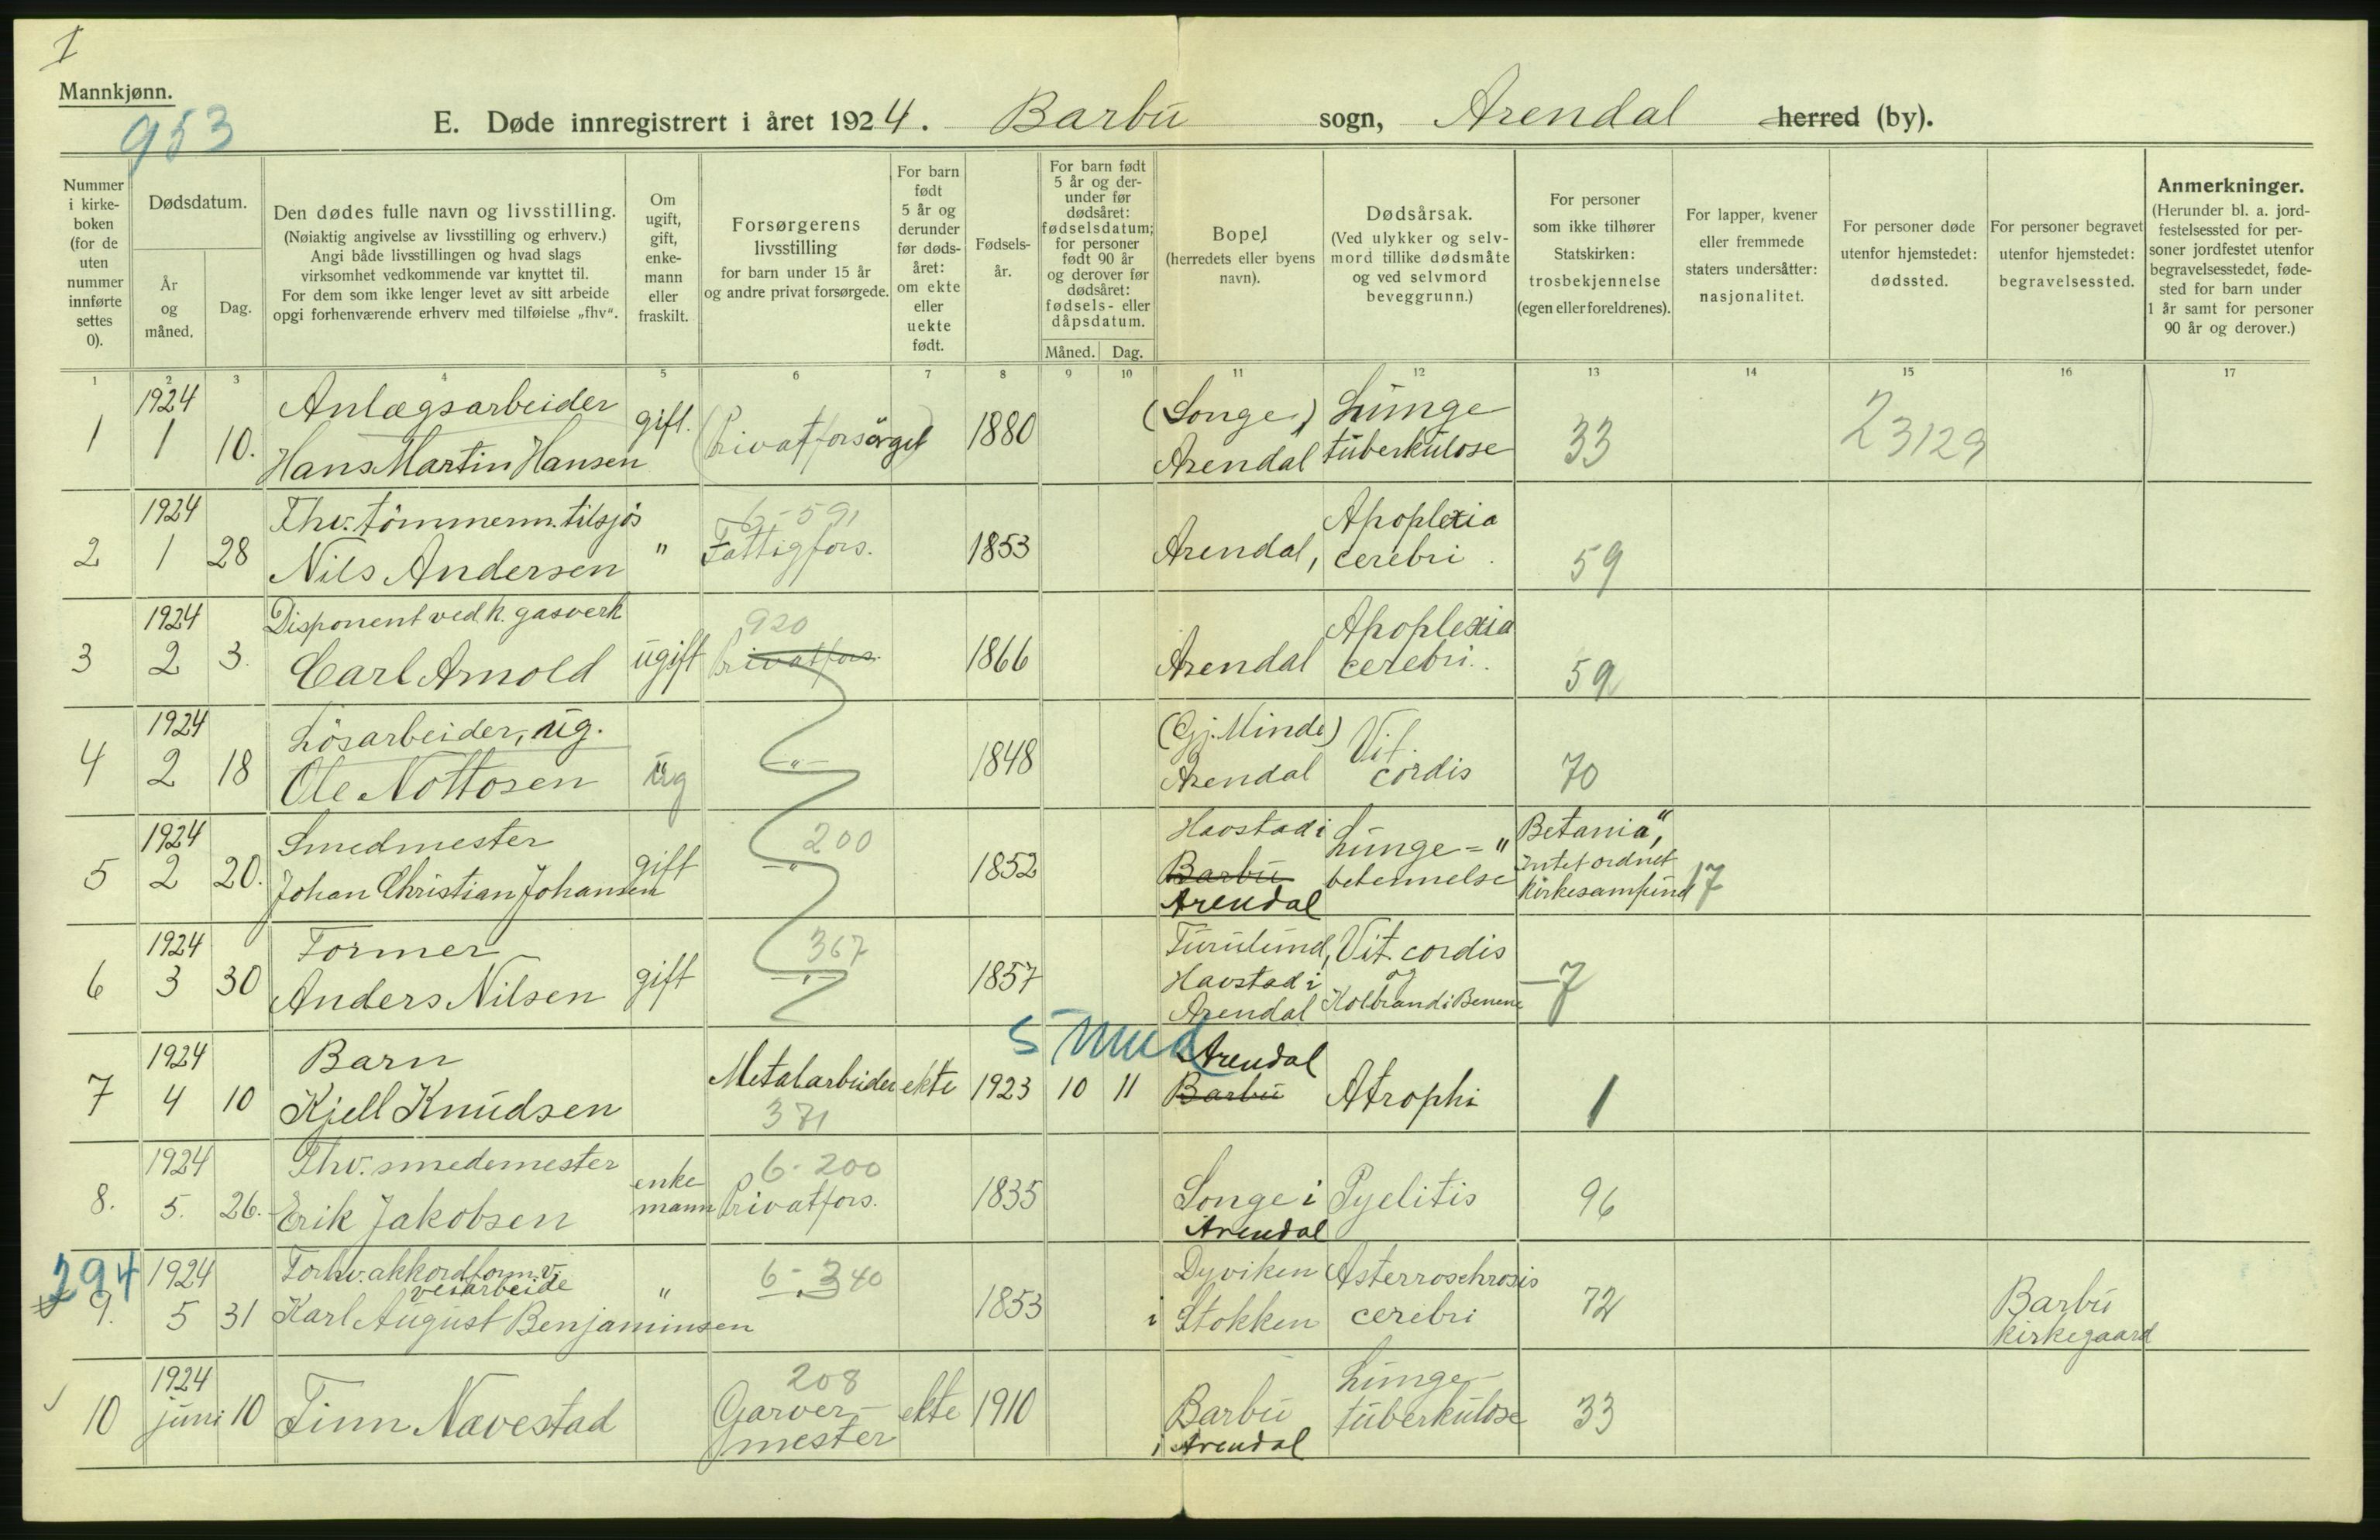 I
Mannkjønn.
953
E. Døde innregistrert i året 1924. Barbu sogn, Arendal herred (by).
Nummer
i kirke-
boken
(for de
uten
nummer
innførte
settes
0).
Dødsdatum.
År
og
måned.
Dag.
Den dødes fulle navn og livsstilling.
(Nøiaktig angivelse av livsstilling og erhverv.)
Angi både livsstillingen og hvad slags
virksomhet vedkommende var knyttet til.
For dem som ikke lenger levet av sitt arbeide
opgi forhenværende erhverv med tilføielse „fhv“.
Om
ugift,
gift,
enke-
mann
eller
fraskilt.
Forsørgerens
livsstilling
for barn under 15 år
og andre privat forsørgede.
For barn
født
5 år og
derunder
før døds-
året:
om ekte
eller
uekte
født.
Fødsels-
år.
For barn født
5 år og der-
under før
dødsåret:
fødselsdatum;
for personer
født 90 år
og derover før
dødsåret:
fødsels- eller
dåpsdatum.
Måned. Dag.
Bopel
(herredets eller byens
navn).
Dødsårsak.
(Ved ulykker og selv-
mord tillike dødsmåte
og ved selvmord
beveggrunn.)
For personer
som ikke tilhører
Statskirken:
trosbekjennelse
(egen eller foreldrenes).
For lapper, kvener
eller fremmede
staters undersåtter:
nasjonalitet.
For personer døde
utenfor hjemstedet:
dødssted.
For personer begravet
utenfor hjemstedet:
begravelsessted.
Anmerkninger.
(Herunder bl. a. jord-
festelsessted for per-
soner jordfestet utenfor
begravelsesstedet, føde-
sted for barn under
1 år samt for personer
90 år og derover.)
1 2 3 4 5 6 7 8 9 10 11 12 13 14 15 16 17
1924 Anlægsarbeider (Songe) Lunge
1 1 10. Hans Martin Hansen gift. (Privatforsörget) 1880 Arendal tuberkulose 33 23129
1924 Fhv. tömmerm. tilsjös 6-591 Apoplexia
2 1 28 Nils Andersen " Fattigfors. 1853 Arendal, cerebri. 59
1924 Disponent ved k. gasverk 920 Apoplexia
3 2 3. Carl Arnold ugift Privatfors. 1866 Arendal cerebri. 59
1924 Lösarbeider, ug. (Gj. Minde) Vit.
4 2 18 Ole Nottosen ug -"- 1848 Arendal cordis 70
1924 Smedmester 200 Havstad i Lunge= "Betania",
5 2 20. Johan Christian Johansen gift -"- 1852 Barbu betennelse Intet ordnet
Arendal kirkesamfund 17
1924 Former 367 Furulund, Vit. cordis
6 3 30 Anders Nilsen gift -"- 1857 Havstad i og 7
Arendal Kolbrand i Benene
5 mnd
1924 Barn Arendal
7 4 10 Kjell Knudsen Metalarbeider ekte 1923 10 11 Barbu Atrophi 1
371
1924 Fhv. smedemester enke 6-200
8. 5. 26. Erik Jakobsen mann Privatfors. 1835 Songe i Pyelitis 96
Arendal
294 1924 Forhv. akkordform. v. 6-340 Dyviken Asterroschrosis
veiarbeide "
9. 5 31 Karl August Benjaminsen 1853 i Stokken cerebri 72 Barbu
kirkegaard
1924 208 Lunge-
10 juni 10 Finn Navestad Garver- ekte 1910 Barbu tuberkulose 33
mester i Arendal